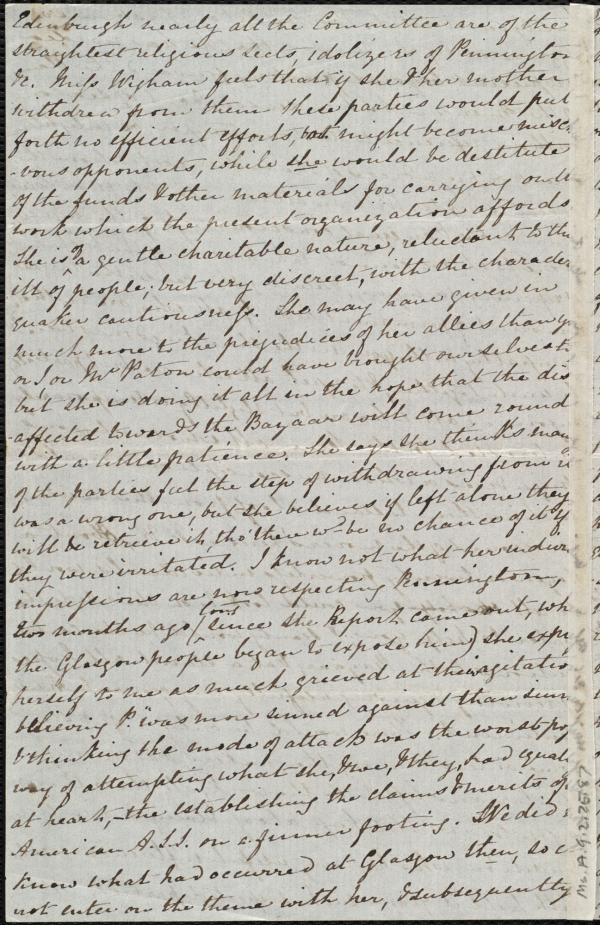 Edinburgh nearly all the Committee are of the
straightest religious sects, idolizers of Pennington
&c. Miss Wigham feels that if she & her mother
withdrew from them these parties would put
forth no efficient efforts, but might become misc
-vous opponents, while she would be destitute
of the funds & other materials for carrying on th
work which the present organization affords
She is of a gentle charitable nature, reluctant to th
ill of people; but very discreet, with the character
quaker cautiousness. She may have given in
much more to the prejudices of her allies than y
or I, or Mr Paton could have brought ourselves t
but she is doing it all in the hope that the dis
-affected towards the Bazaar will come round
with a little patience. She says she thinks many
of the parties feel the step of withdrawing from it
was a wrong one, but she believes if left alone they
will retrieve it, tho' there wd be no chance of it if
they were irritated. I know not what her indivi
impressions are now respecting Pennington,
two months ago (since the Report came out, wh
the Glasgow people began to expose him) she expr
herself to me as much grieved at the agitation
believing P. was more sinned against than sinn
& thinking the mode of attack was the worst po
way of attempting what she, & we, & they, had equal
at heart,—the establishing the claims & merits of
American A.S.S. on a firmer footing. We did n
know what had occurred at Glasgow then, so c
not enter on the theme with her, & subsequently
Ms. A. 9. 2. 25. 87